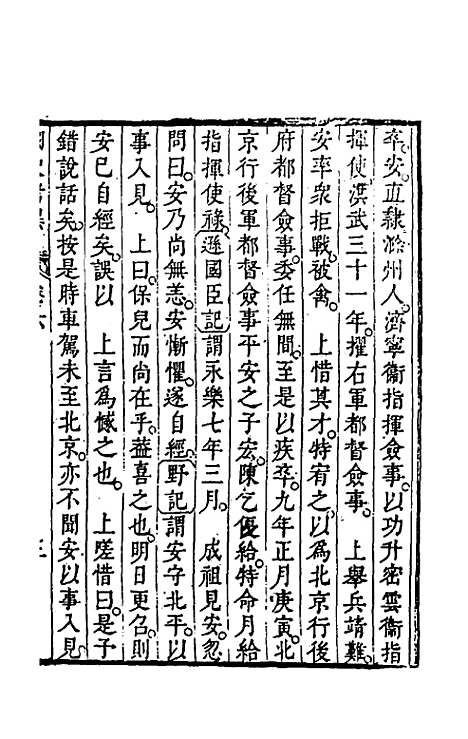 卒安。直隸滁州人。濟寧衞指揮僉事。以功升密雲衞指
揮使。洪武三十一年。擢右軍都督僉事。　上舉兵靖難。
安率衆拒戰。被禽。　上惜其才。特宥之。以爲北京行後
府都督僉事。委任無間。至是以疾卒。九年正月庚寅。北
京行後軍都督僉事平安之子宏。陳乞優給。特命月給
指揮使祿。遜國臣記謂永樂七年三月。　成祖見安。忽
問曰。安乃尚無恙。安慚懼。遂自經。野記謂安守北平。以
事入見。　上曰。保兒而尚在乎。葢喜之也。明日更召。則
安已自經矣。誤以　上言爲憾之也。　上嗟惜曰。是子
錯說話矣。按是時車駕未至北京。亦不聞安以事入見。